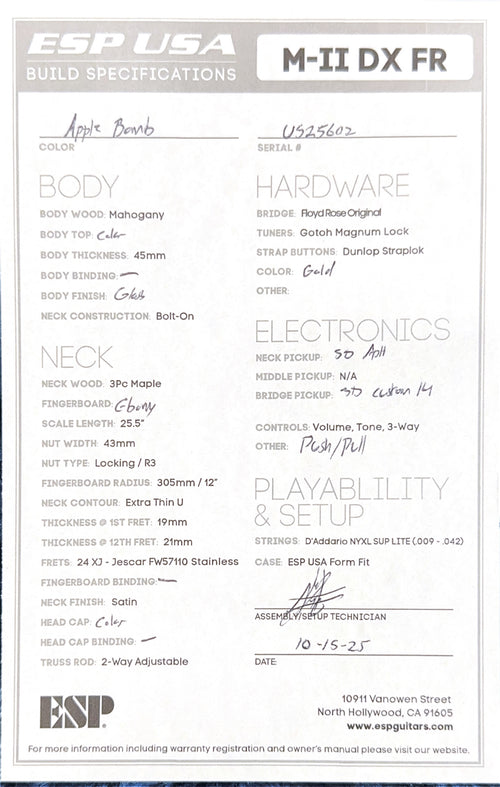 ESP USA
BUILD SPECIFICATIONS
M-II DX FR
Apple Bomb
COLOR
US25602
SERIAL #
BODY
BODY WOOD: Mahogany
BODY TOP: Color
BODY THICKNESS: 45mm
BODY BINDING: —
BODY FINISH: Gloss
NECK CONSTRUCTION: Bolt-On
NECK
NECK WOOD: 3Pc Maple
FINGERBOARD: Ebony
SCALE LENGTH: 25.5"
NUT WIDTH: 43mm
NUT TYPE: Locking / R3
FINGERBOARD RADIUS: 305mm / 12"
NECK CONTOUR: Extra Thin U
THICKNESS @ 1ST FRET: 19mm
THICKNESS @ 12TH FRET: 21mm
FRETS: 24 XJ - Jescar FW57110 Stainless
FINGERBOARD BINDING: —
NECK FINISH: Satin
HEAD CAP: Color
HEAD CAP BINDING: —
TRUSS ROD: 2-Way Adjustable
HARDWARE
BRIDGE: Floyd Rose Original
TUNERS: Gotoh Magnum Lock
STRAP BUTTONS: Dunlop Straplok
COLOR: Gold
OTHER:
ELECTRONICS
NECK PICKUP: SD APH
MIDDLE PICKUP: N/A
BRIDGE PICKUP: SD Custom 14
CONTROLS: Volume, Tone, 3-Way
OTHER: Push/Pull
PLAYABLILITY
& SETUP
STRINGS: D'Addario NYXL SUP LITE (.009 - .042)
CASE: ESP USA Form Fit
ASSEMBLY/SETUP TECHNICIAN
10-15-25
DATE:
ESP
10911 Vanowen Street
North Hollywood, CA 91605
www.espguitars.com
For more information including warranty registration and owner's manual please visit our website.